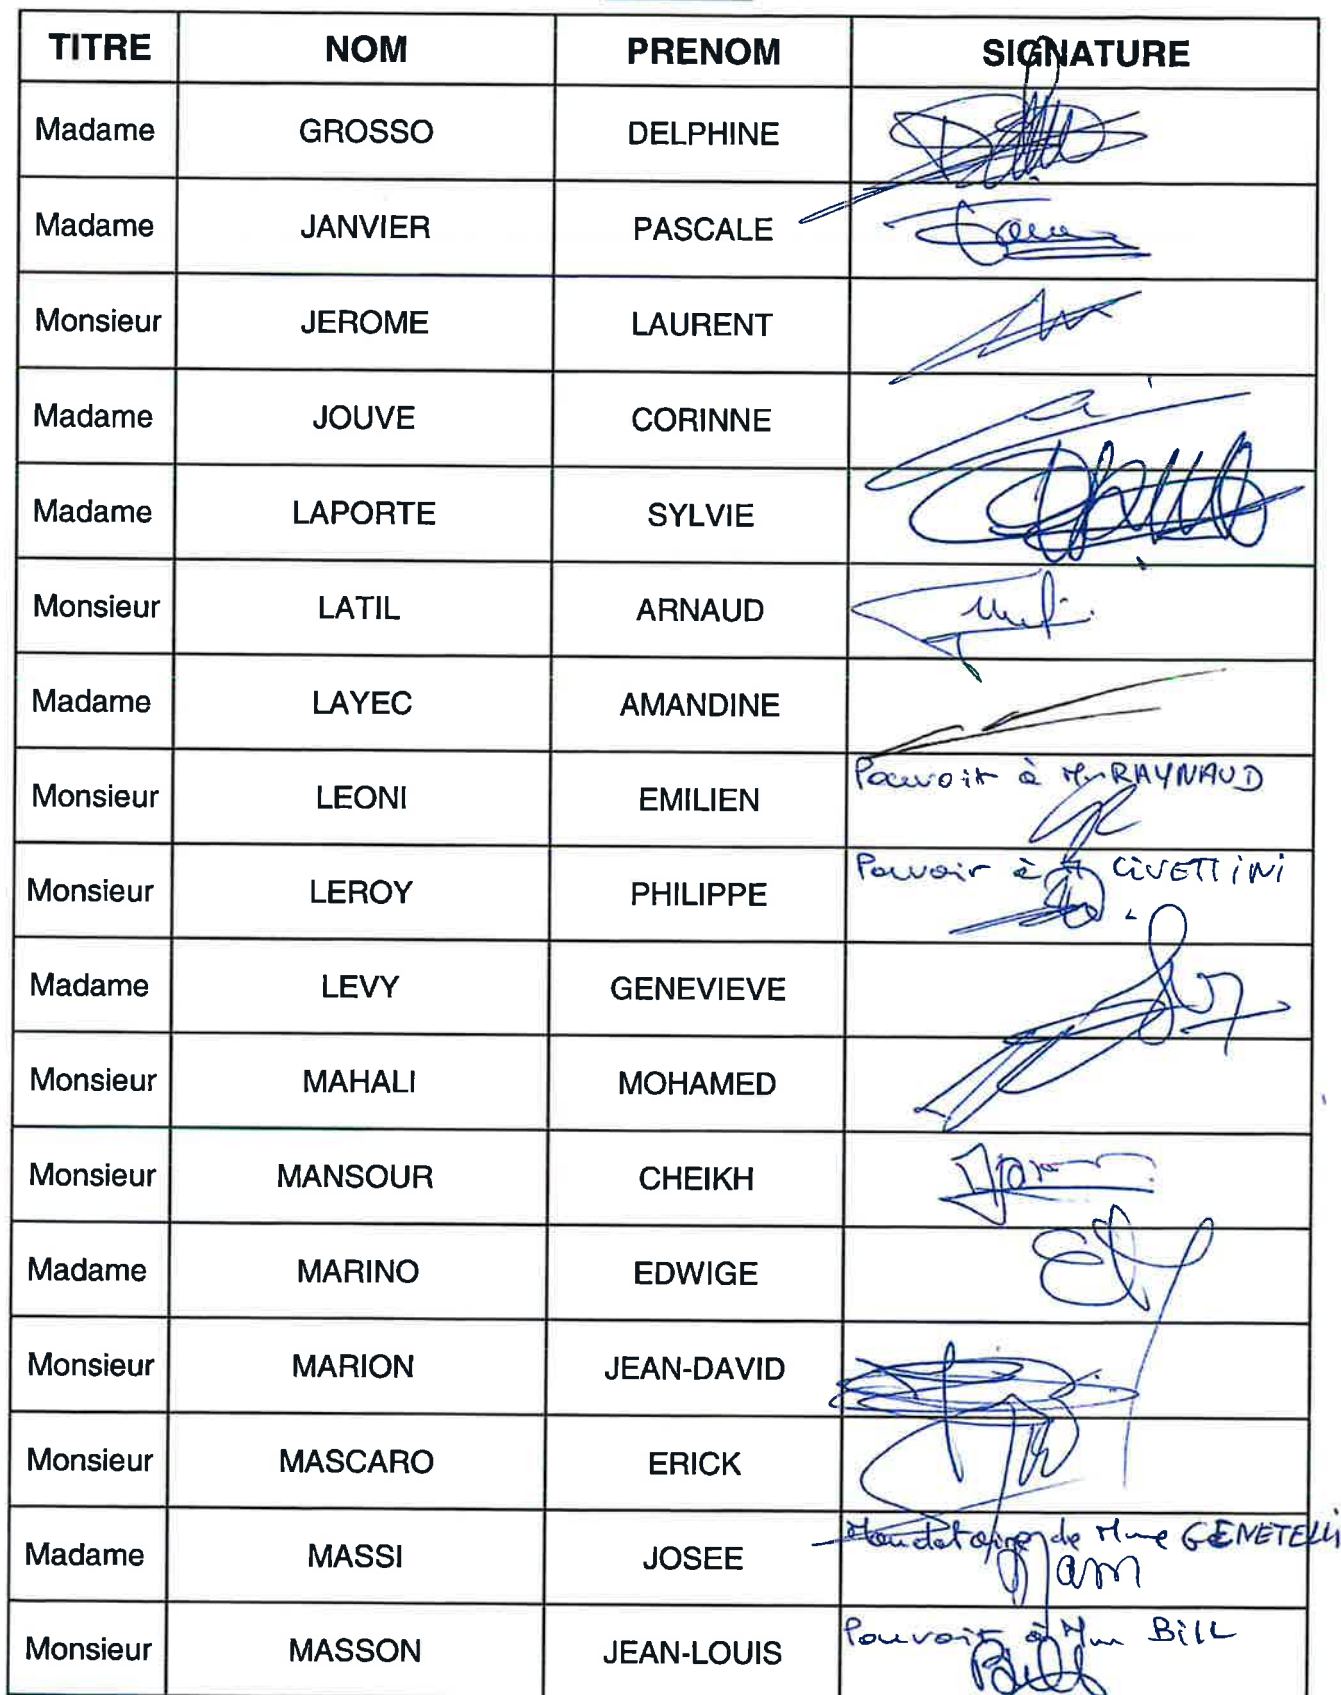 TITRE NOM PRENOM SIGNATURE
Madame GROSSO DELPHINE
Madame JANVIER PASCALE
Monsieur JEROME LAURENT
Madame JOUVE CORINNE
Madame LAPORTE SYLVIE
Monsieur LATIL ARNAUD
Madame LAYEC AMANDINE
Monsieur LEONI EMILIEN Pouvoir à Mr RAYNAUD
Monsieur LEROY PHILIPPE Pouvoir à CIVETTINI
Madame LEVY GENEVIEVE
Monsieur MAHALI MOHAMED
Monsieur MANSOUR CHEIKH
Madame MARINO EDWIGE
Monsieur MARION JEAN-DAVID
Monsieur MASCARO ERICK
Madame MASSI JOSEE Mandataire de Mme GENETELLI
Monsieur MASSON JEAN-LOUIS Pouvoir à Mme BILL